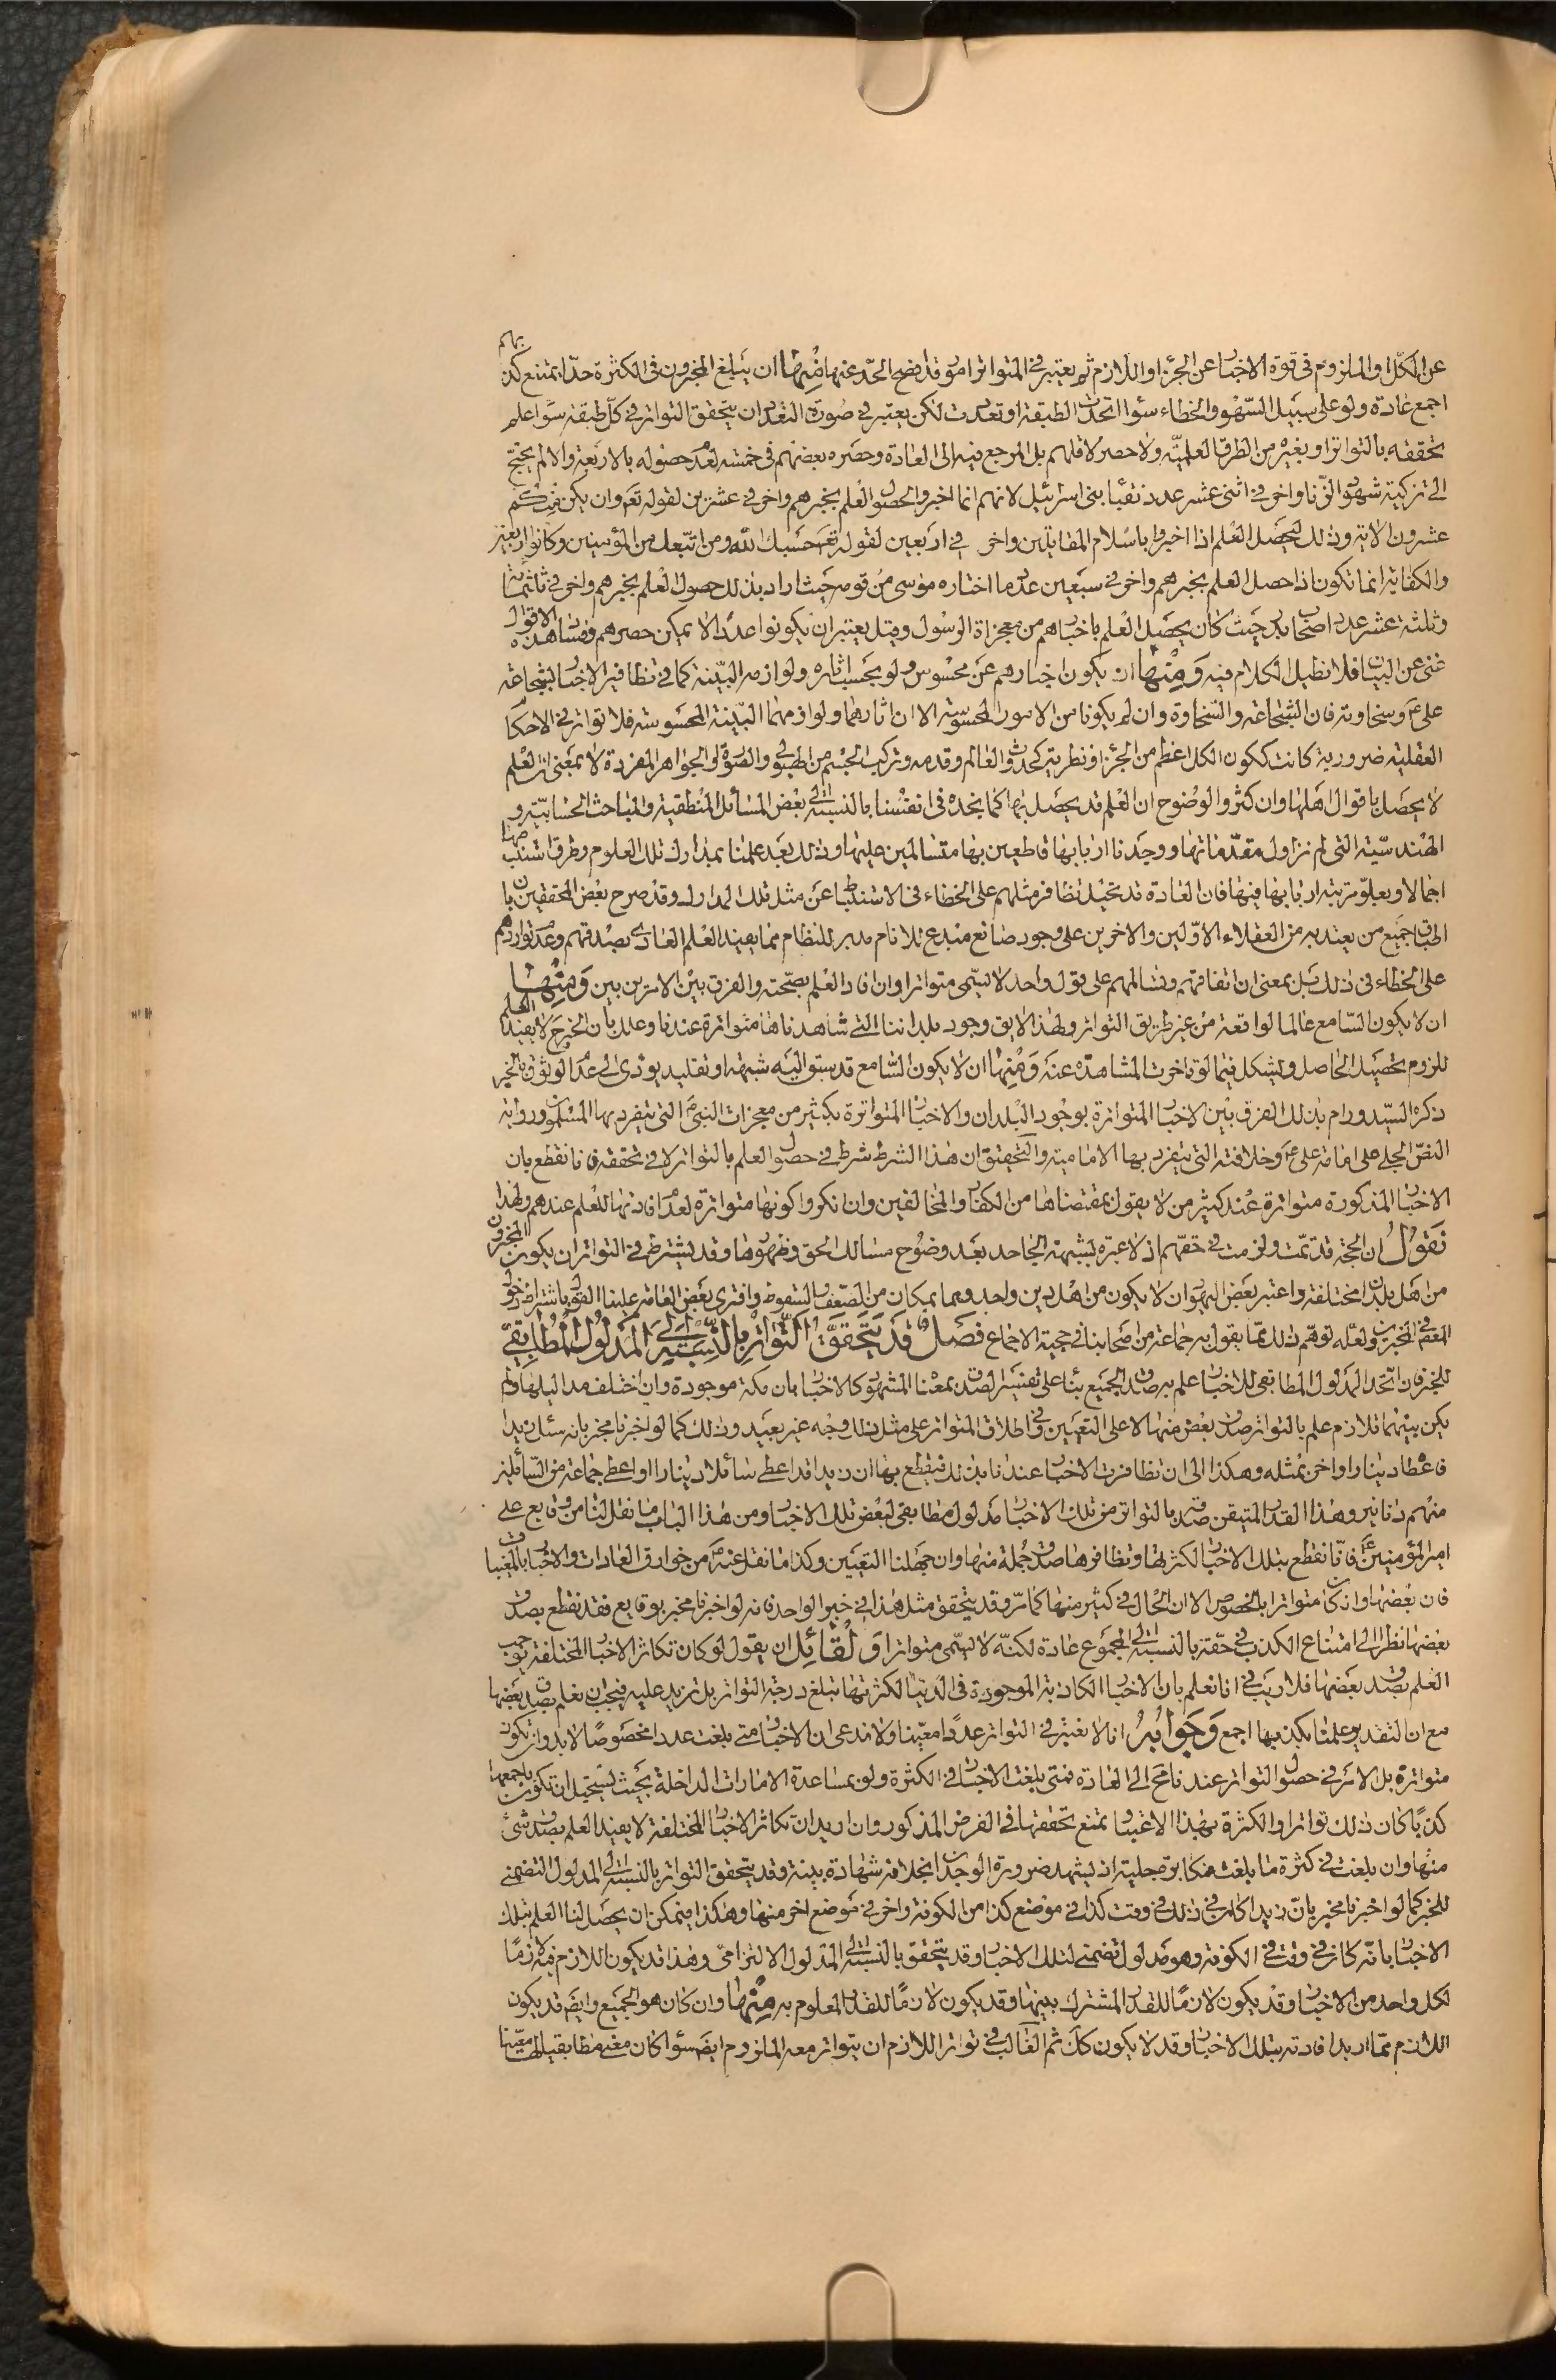 عن الكل او الملزوم فى قوة الاخبار عن الجزء او اللازم ثم يعتبر فى المتواتر امور قد افصح الحد عنها منها ان يبلغ المخبرون فى الكثرة حدا يمتنع كذبهم
اجمع عادة ولو على سبيل السهو والخطاء سواء اتحدت الطبقة او تعددت لكن يعتبر فى صورة التعدد ان يتحقق التواتر فى كل طبقة سواء علم
تحققه بالتواتر او بغيره من الطرق العلمية ولا حصر لاقلهم بل المرجع فيه الى العادة وحصره بعضهم فى خمسة لعدم حصوله بالاربعة والا لم يحتج
الى تزكية شهود الزنا واخر فى اثنى عشر عدد نقباء بنى اسرائيل لانهم انما اخبروا لحصول العلم بخبرهم واخر فى عشرين لقوله تعالى وان يكن منكم
عشرون الاية وذلك ليحصل العلم اذا اخبروا باسلام المقاتلين واخر فى اربعين لقوله تع حسبك الله ومن اتبعك من المؤمنين وكانوا اربعين
والكفاية انما تكون اذا حصل العلم بخبرهم واخر فى سبعين عدد ما اختاره موسى من قومه حيث اراد بذلك حصول العلم بخبرهم واخر فى ثلثمائة
وثلثة عشر عدد اصحاب بدر حيث كان يحصل العلم باخبارهم من معجزاة الرسول وقيل يعتبر ان يكونوا عددا لا يمكن حصرهم وفساد هذه الاقوال
غنى عن البيان فلا نطيل الكلام فيه ومنها ان يكون اخبارهم عن محسوس ولو بحسب اثاره ولوازمه البينة كما فى تظافير الاخبار بشجاعة
على ع وسخاوته فان الشجاعة والسخاوة وان لم يكونا من الامور المحسوسة الا ان اثارهما ولوازمهما البينة المحسوسة فلا تواتر فى الاحكام
العقلية ضرورية كانت ككون الكل اعظم من الجزء او نظرية كحدوث العالم وقدمه وتركيب الجسم من الهيولى والصورة او الجواهر المفردة لا بمعنى ان العلم
لا يحصل باقوال اهلها وان كثروا لوضوح ان العلم قد يحصل بها كما نجده فى انفسنا بالنسبة الى بعض المسائل المنطقية والمباحث الحسابية و
الهندسية التى لم نزاول مقدماتها ووجدنا اربابها قاطعين بها متسالمين عليها وذلك بعد علمنا بمدارك تلك العلوم وطرق استنباطها
اجمالا وبعلو مرتبة اربابها فيها فان العادة قد تحيل تظافر مثلهم على الخطاء فى الاستنباط عن مثل تلك المدارك وقد صرح بعض المحققين بان
اطباق جميع من يعتد به من العقلاء الاولين والاخرين على وجود صانع مبدع للانام مدبر للنظام مما يفيد العلم العادى بصدقهم وعدم تواردهم
على الخطاء فى ذلك بل بمعنى ان اتفاقهم وتسالمهم على قول واحد لا يسمى متواترا وان افاد العلم بصحته والفرق بين الامرين بين ومنها
ان لا يكون السامع عالما لواقعة من غير طريق التواتر ولهذا لا يق وجود بلداننا التى شاهدناها متواترة عندنا وعلل بان الخبر ح لا يفيد العلم
للزوم تحصيل الحاصل ويشكل فيما لو تاخرت المشاهدة عنه ومنها ان لا يكون السامع قد سبق اليه شبهة او تقليد يؤدى الى عدم الوثوق بالخبر
ذكره السيد ورام بذلك الفرق بين الاخبار المتواترة بوجود البلدان والاخبار المتواترة بكثير من معجزات النبى ص التى يتفرد بها المسلمون ورواية
النص الجلى على امامة على ع وخلافته التى يتفرد بها الامامية والتحقيق ان هذا الشرط شرط فى حصول العلم بالتواتر لا فى تحققه فانا نقطع بان
الاخبار المذكورة متواترة عند كثير من لا يقول بمقتضاها من الكفار والمخالفين وان انكروا كونها متواترة لعدم افادتها للعلم عندهم ولهذا
نقول ان الحجة قد تمت ولزمت فى حقهم اذ لا عبرة بشبهة الجاحد بعد وضوح مسالك الحق وظهورها وقد يشترط فى التواتر ان يكون المخبرون
من اهل بلدان مختلفة واعتبر بعض اليهود ان لا يكون من اهل دين واحد وهما بمكان من الضعف والسقوط وافترى بعض العامة علينا القول باشتراط دخول
المعصوم فى المخبرين ولعله توهم ذلك مما يقول به جماعة من اصحابنا فى حجية الاجماع فصل قد يتحقق التواتر بالنسبة الى المدلول المطابقى
للخبر فان اتحد المدلول المطابقى للاخبار علم به صدق الجميع بناء على تفسير الصدق بمعناه المشهور كالاخبار بان مكة موجودة وان اختلف مداليلها ولم
يكن بينهما تلازم علم بالتواتر صدق بعض منها لا على التعيين وفى اطلاق المتواتر على مثل ذلك وجه غير بعيد وذلك كما لو اخبرنا مخبر بانه سئل زيدا
فاعطاه دينارا واخر بمثله وهكذا الى ان تظافرت الاخبار عندنا بذلك فيقطع بها ان زيدا قد اعطى سائلا دينارا او اعطى جماعة من السائلين
منهم دنانير وهذا القدر المتيقن صدقه بالتواتر من تلك الاخبار مدلول مطابقى لبعض تلك الاخبار ومن هذا الباب ما نقل لنا من وقايع على
امير المؤمنين ع فانا نقطع بتلك الاخبار لكثرتها وتظافرها صدق جملة منها وان جهلنا التعيين وكذا ما نقل عنه ع من خوارق العادات والاخبار بالمغيبات
فان بعضها وان كان متواترا بالخصوص الا ان الحال فى كثير منها كما مر وقد يتحقق مثل هذا فى خبر الواحد فانه لو اخبرنا مخبر بوقايع فقد نقطع بصدق
بعضها نظرا الى امتناع الكذب فى حقه بالنسبة الى المجموع عادة لكنه لا يسمى متواترا ولقائل ان يقول لو كان تكاثر الاخبار المختلفة توجب
العلم بصدق بعضها فلا ريب فى انا نعلم بان الاخبار الكاذبة الموجودة فى الدنيا لكثرتها تبلغ درجة التواتر بل تزيد عليه فيجب ان نعلم بصدق بعضها
مع ان التقدير علمنا بكذبها اجمع وجوابه انا لا نعتبر فى التواتر عددا معينا ولا ندعى ان الاخبار متى بلغت عددا مخصوصا لا بد وان تكون
متواترة بل الامر فى حصول التواتر عندنا محال الى العادة فمتى بلغت الاخبار فى الكثرة ولو بمساعدة الامارات الداخلة بحيث يستحيل ان تكون باجمعها
كذبا كان ذلك تواترا والكثرة بهذا الاعتبار يمتنع تحققها فى الفرض المذكور وان اريد ان تكاثر الاخبار المختلفة لا يفيد العلم بصدق شئ
منها وان بلغت فى كثرة ما بلغت فمكابرة جلية اذ يشهد ضرورة الوجدان بخلافه شهادة بينة وقد يتحقق التواتر بالنسبة الى المدلول التضمنى
للخبر كما لو اخبرنا مخبر بان زيدا كان فى ذلك فى وقت كذا فى موضع كذا من الكوفة واخر فى موضع اخر منها وهكذا فيمكن ان يحصل لنا العلم بتلك
الاخبار بانه كان فى وقت فى الكوفة وهو مدلول تضمنى لتلك الاخبار وقد يتحقق بالنسبة الى المدلول الالتزامى وهذا قد يكون اللازم فيه لازما
لكل واحد من الاخبار وقد يكون لازما للقدر المشترك بينها وقد يكون لازما للقدر المعلوم به منها وان كان هو الجميع وايض قد يكون
اللازم مما اريد افادته بتلك الاخبار وقد لا يكون كك ثم الغالب فى تواتر اللازم ان يتواتر معه الملزوم ايض سواء كان معنى مطابقيا لها معينا